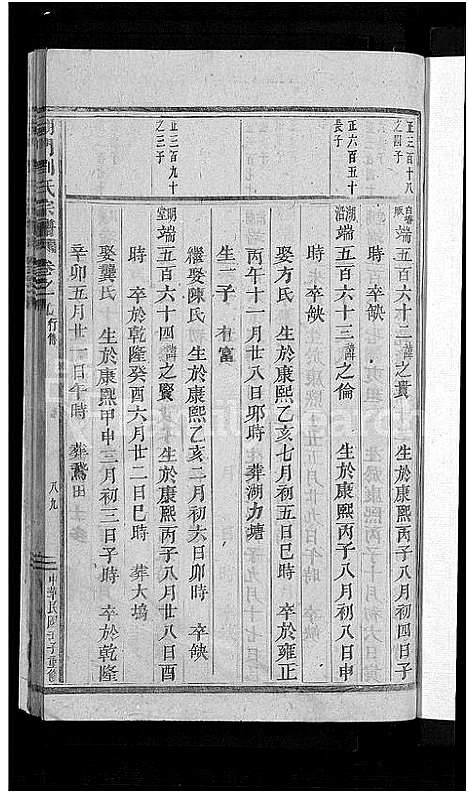 正三百十八
之四子
白塔畈 端五百六十二 諱之貴 生於康熙丙子八月初四日子
時 卒缺
正六百五十
長子
湖沿 端五百六十三 諱之倫 生於康熙丙子八月初八日申
時 卒缺
娶方氏 生於康熙乙亥七月初五日巳時 卒於雍正
丙午十一月廿八日卯時 葬湖力塘
生一子 有富
繼娶陳氏 生於康熙乙亥二月初六日卯時 卒缺
正三百九十
之三子
明堂 端五百六十四 諱之賢 生於康熙丙子八月廿八日酉
時 卒於乾隆癸酉六月廿二日巳時 葬大塢
娶龔氏 生於康熙甲申三月初三日子時 卒於乾隆
辛卯五月廿一日午時 葬鵞田
劉氏宗譜 卷之 行傳
八九
中華民國 子重修